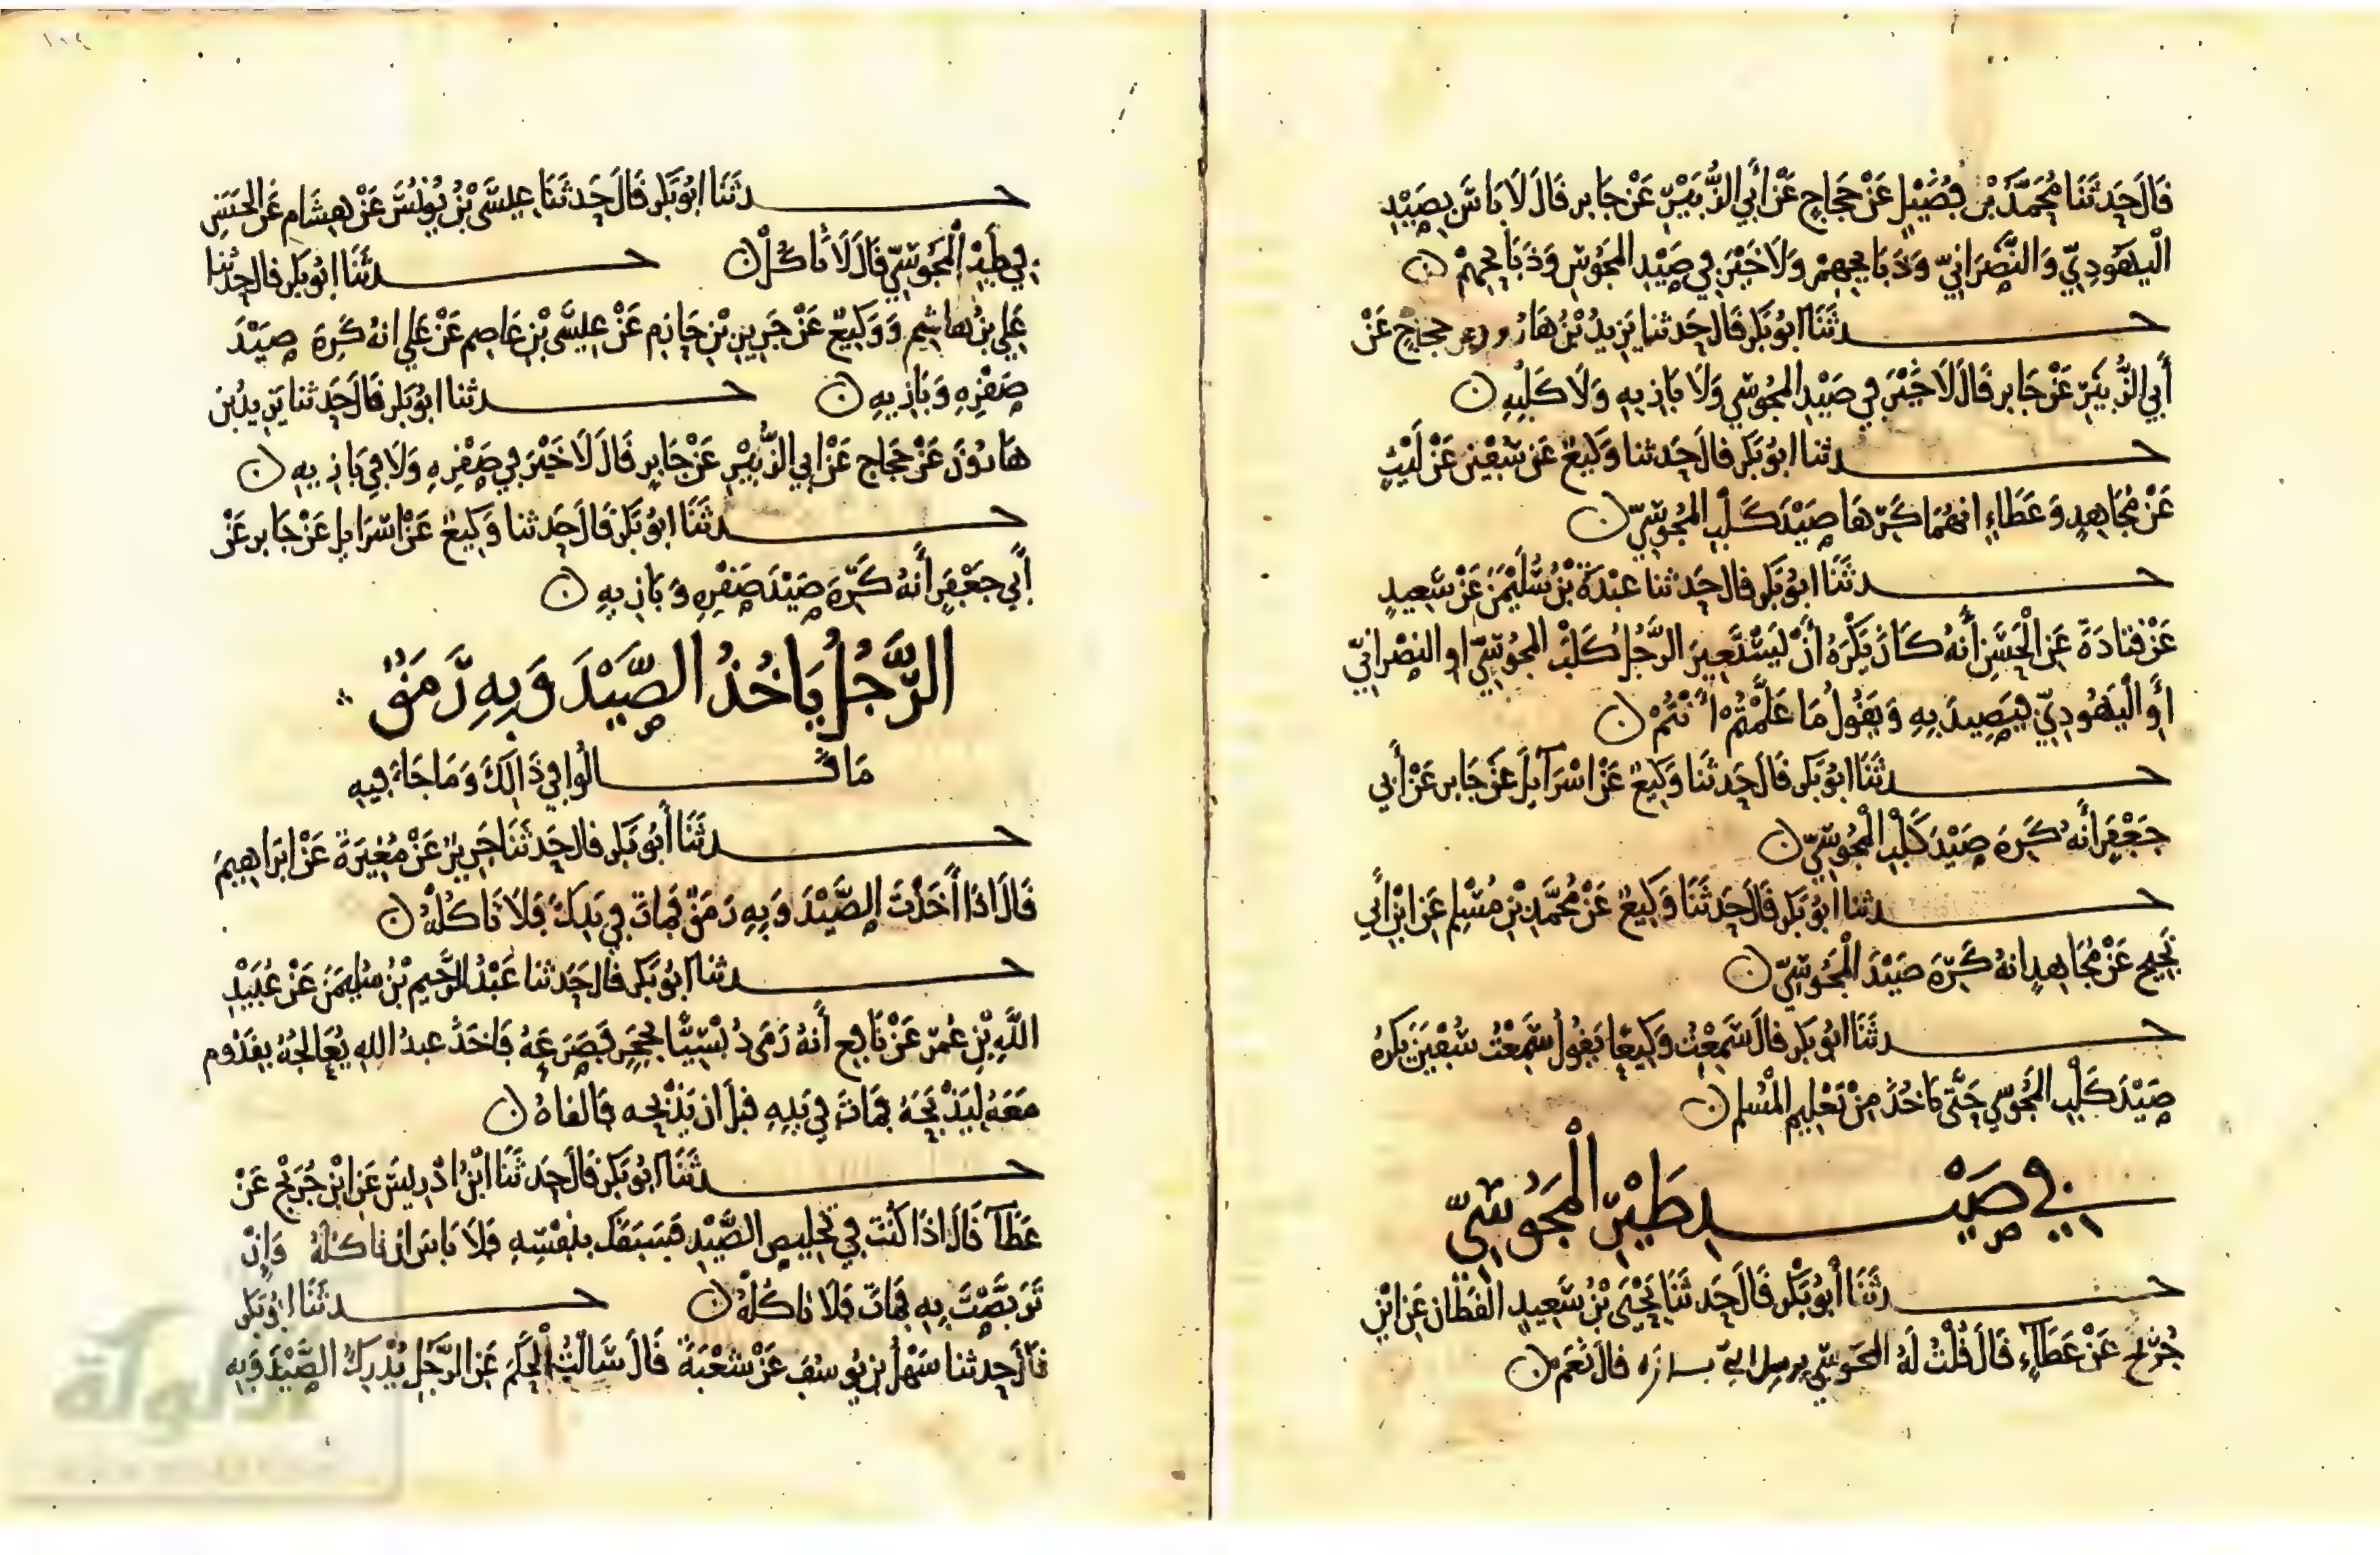 قَالَ حَدثَنَا مُحَمَّدُ بْن فُضَيْلٍ عَنْ حَجَاجٍ عَنْ أَبي الزُّبَيْرِ عَنْ جَابر قَالَ لَا بَاسَ بصَيْدِ
الْيَهُودِيّ وَالنَّصْرَانيّ وَذَبَايحِهِمْ وَلَا خَيْرَ في صَيْدِ المَجُوسِ وَذَبَايحِهِمْ ن
حـدثَنَا ابُو بَكر قَال حَدثنا يَزيدُ بْنُ هَارُون عن حجاجٍ عَنْ
أَبي الزُّبَيرِ عَنْ جَابر قَالَ لَا خَيْرَ في صَيْدِ المجُوسي وَلَا بَازيهِ وَلَا كَلْبِهِ ن
حـدثنا ابُو بَكر قَالَ حَدثنا وَكيعٌ عَن سُفْيٰنَ عَنْ لَيْثٍ
عَنْ مُجَاهِدٍ وَعَطَاءٍ انهُمَا كَرّهَا صَيْدَ كَلْبِ المَجُوسِيّ ن
حـدثَنَا ابُو بَكر قَال حَدثنا عَبْدَةُ بْنُ سُلَيْمٰنَ عَنْ سَعِيدٍ
عَنْ قتَادَةَ عَن الْحَسَنِ أَنهُ كَانَ يَكْرَهُ أَنْ يَسْتَعِيرَ الرَّجُلُ كَلْبَ المجُوسيّ او النصْرانيّ
أَوِ الْيَهُودِيّ فيَصِيدَ بِهِ وَيَقُولُ مَا عَلَّمْتُمْ أنْتُمْ ن
حـدثَنَا ابُو بَكر قَالَ حَدثَنا وَكيعٌ عَنْ اسْرَآيلَ عَنْ جَابر عَنْ أَبي
جَعْفَرٍ أَنهُ كَرِهَ صَيْدَ كَلْبِ الْمَجُوسِيّ ن
حـدثنا ابُو بَكر قَالَ حَدثَنَا وَكيعٌ عَنْ مُحَمَّدِ بْنِ مُسْلِمٍ عَنِ ابْنِ أَبي
نَجِيحٍ عَنْ مُجَاهِدٍ انهُ كَرِهَ صَيْدَ الْمَجُوسِيّ ن
حـدثَنَا ابُو بَكر قَالَ سَمِعْتُ وَكيعًا يَقُولُ سَمِعْتُ سُفْيٰنَ يَكرَهُ
صَيْدَ كَلْبِ المجُوسي حَتَّى يَاخُذَ مِنْ تَعْليمِ الْمُسْلم ن
في صَيْـدِ طَيْرِ الْمَجُوسِيّ
حـدثَنَا أَبُو بَكْر قَالَ حَدثَنَا يَحْيَى بْنُ سَعِيدٍ القَطّان عَن ابْنِ
جُرَيْجٍ عَنْ عَطَاءٍ قَالَ قُلْتُ لَهُ المجوسيّ يرسل بازه قَالَ نَعَم ن
حـدثَنَا ابُو بَكر قَالَ حَدثَنَا عِيسَى بْنُ يُونُسَ عَنْ هِشَامٍ عَنِ الْحَسَنِ
في طَيْرِ الْمَجُوسِيّ قَالَ لَا تَاكُلْ ن حـدثَنَا ابُو بَكر قَال حَدثنا
عَلي بنُ هَاشِمٍ وَوَكيعٌ عَنْ جَرِيرِ بْنِ حَازِم عَنْ عِيسَى بْنِ عَاصِم عَنْ عَلي انهُ كَرِهَ صَيْدَ
صَقْرِهِ وَبَازِيهِ ن حـدثنا ابُو بَكر قَالَ حَدثنا يَزِيدُ بْن
هَارُونَ عَنْ حَجَاجٍ عَنْ ابي الزُّبَيْرِ عَنْ جَابرٍ قَالَ لَا خَيْرَ في صَقْرِهِ وَلَا في بَازِيهِ ن
حـدثَنَا ابُو بَكر قَالَ حَدثنا وَكيعٌ عَنْ اسْرَايل عَنْ جَابر عَنْ
أَبي جَعْفَرٍ أَنهُ كَرِهَ صَيْدَ صَقْرِهِ وَبَازِيهِ ن
الرَّجُلُ يَاخُذُ الصَّيْدَ وَبِهِ رَمَقٌ
مَا قَـالُوا في ذَالِكَ وَمَا جَاءَ فيهِ
حـدثَنَا أَبُو بَكر قَال حَدثَنَا جَرِيرٌ عَنْ مُغِيرَةَ عَنْ ابرَاهِيمَ
قَالَ اذَا أَخَذْتَ الصَّيْدَ وَبِهِ رَمَقٌ فَمَاتَ في يَدِكَ فَلَا تَاكُلْهُ ن
حـدثنا ابُو بَكر قَالَ حَدثنا عَبْدُ الرَّحِيمِ بْنُ سُلَيمٰنَ عَنْ عُبَيْدِ
اللَّهِ بْنِ عُمَرَ عَنْ نَافعٍ أَنهُ رَمَى دُبْسِيًّا بحَجَرٍ فَصَرَعَهُ فَاخَذَ عبدُ الله يُعَالجُهُ بقَدُوم
مَعَهُ لِيَذْبَحَهُ فَمَاتَ في يَدِهِ قبل ان يَذْبَحه فَالقَاهُ ن
حـدثَنَا ابُو بَكر قَالَ حَدثَنَا ابْنُ ادْرِيسَ عَنِ ابْنِ جُرَيْجٍ عَنْ
عَطَآءٍ قَالَ اذَا كُنْتَ في تَخْليصِ الصَّيْدِ فَسَبَقَكَ بنَفْسِهِ فَلَا بَاسَ ان تَاكُلَهُ وَانْ
تَرَبَّصْتَ بِهِ فَمَاتَ فَلَا تَاكُلْهُ ن حـدثَنَا ابُو بَكر
قَالَ حدثنا سَهْلُ بن يُوسُفَ عَنْ شُعْبَةَ قَالَ سَالْتُ الْحَكَمَ عَن الرَّجُلِ يُدْرِكُ الصَّيْدَ وَبِهِ
١١٤
الألوكة